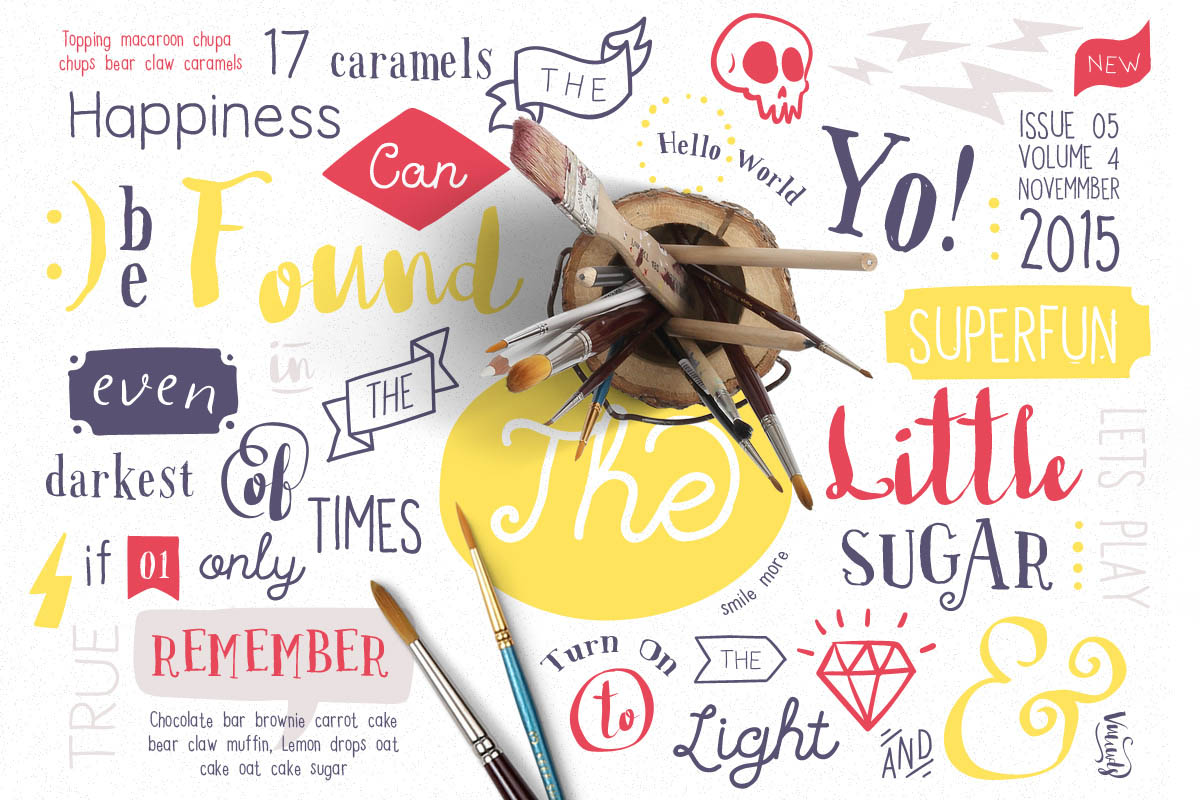 Topping macaroon chupa
chups bear claw caramels
17 caramels
THE
NEW
Happiness
Can
Hello World
Yo!
ISSUE 05
VOLUME 4
NOVEMMBER
2015
:)
be
Found
SUPERFUN
even
in
THE
The
Little
LETS PLAY
darkest
Of
TIMES
SUGAR
if 01 only
smile more
TRUE
REMEMBER
Turn On
THE
to
Light
&
AND
Chocolate bar brownie carrot cake
bear claw muffin, Lemon drops oat
cake oat cake sugar